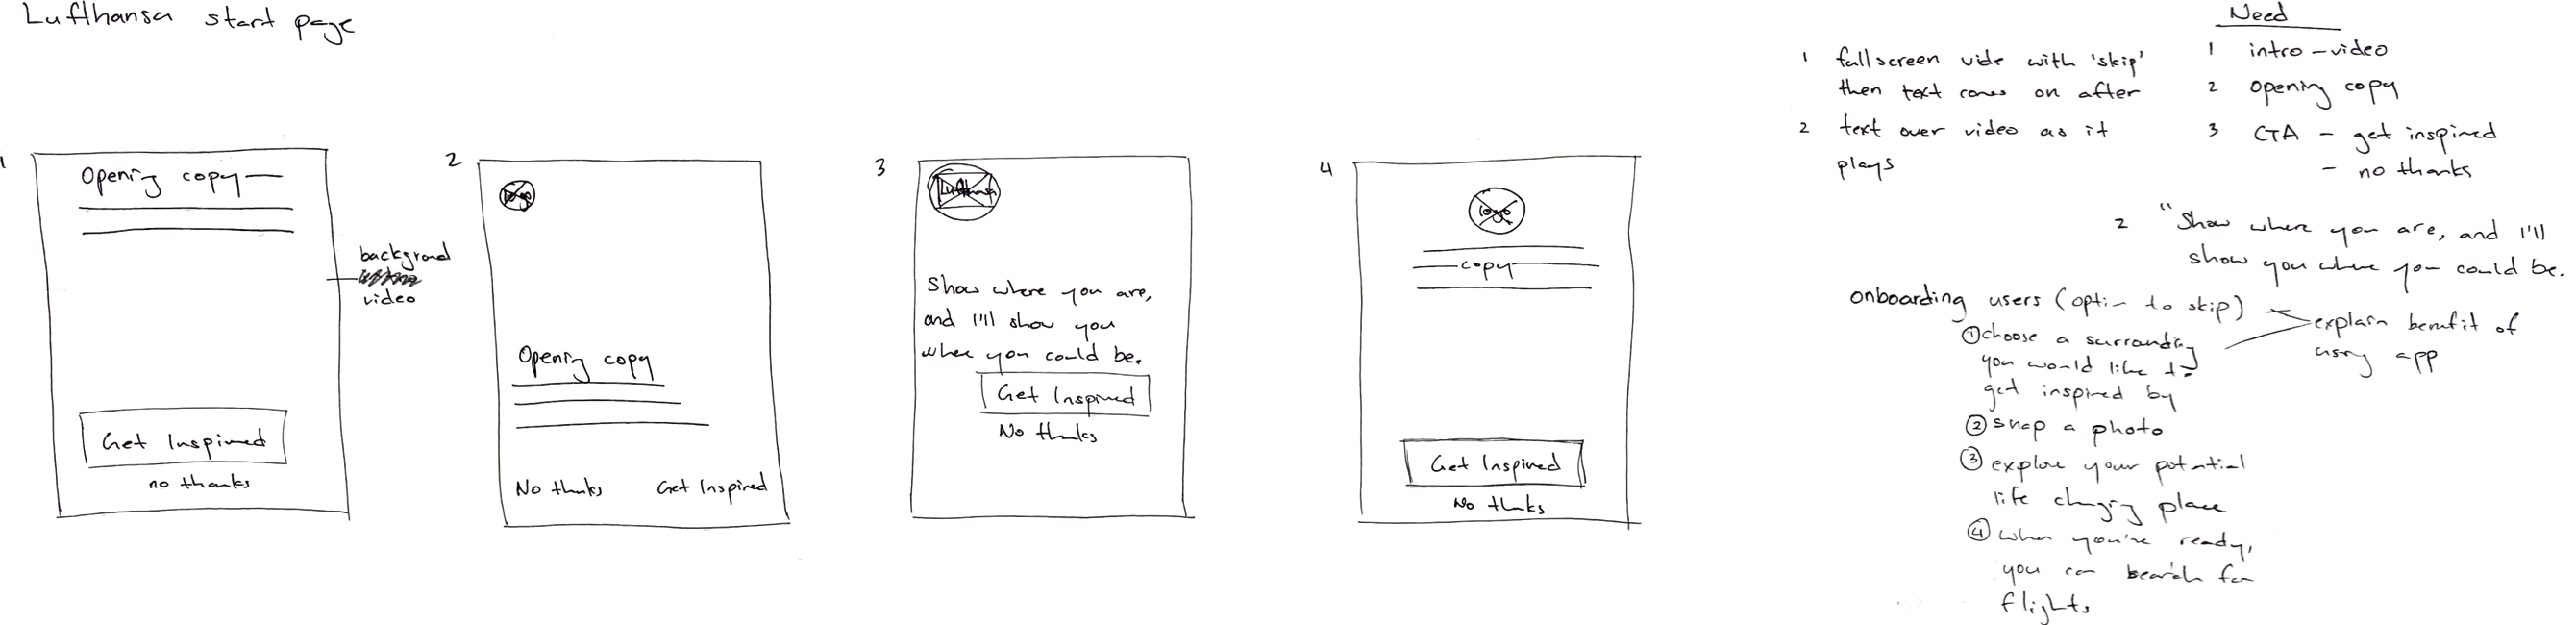 Lufthansa start page
1
Opening copy
Get Inspired
no thanks
background
video
2
logo
Opening copy
No thanks Get Inspired
3
Lufthansa
Show where you are,
and I'll show you
where you could be.
Get Inspired
No thanks
4
logo
copy
Get Inspired
No thanks
1 fullscreen vide with 'skip'
then text comes on after
2 text over video as it
plays
Need
1 intro-video
2 opening copy
3 CTA - get inspired
- no thanks
2 "Show where you are, and I'll
show you where you could be.
onboarding users (option to skip)
explain benefit of
using app
① choose a surrounding
you would like to
get inspired by
② snap a photo
③ explore your potential
life changing place
④ when you're ready,
you can search for
flights